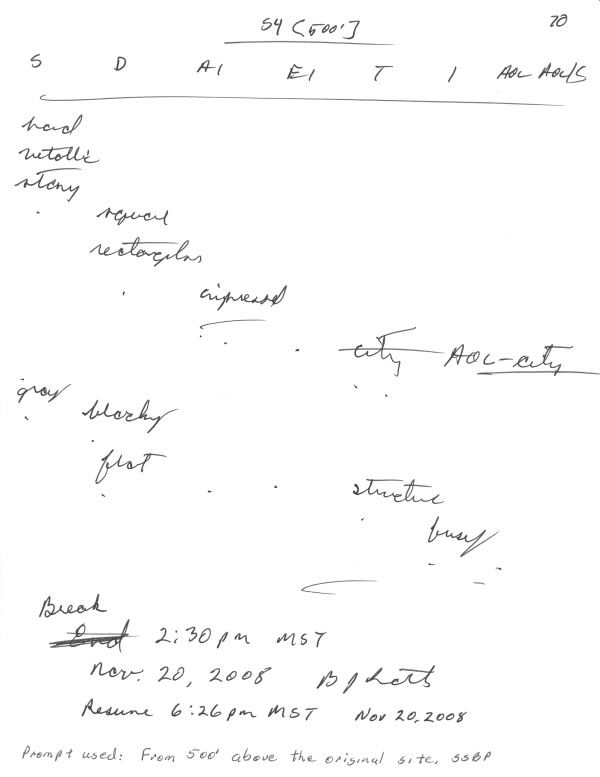 S4 [500']
20
S D AI EI T I AOL AOL/S
hard
metallic
stony
square
rectangular
impressed
city AOL-city
gray
blocky
flat
structure
busy
Break
End 2:30pm MST
Nov. 20, 2008
Resume 6:26pm MST Nov 20, 2008
Prompt used: From 500' above the original site, SSBP